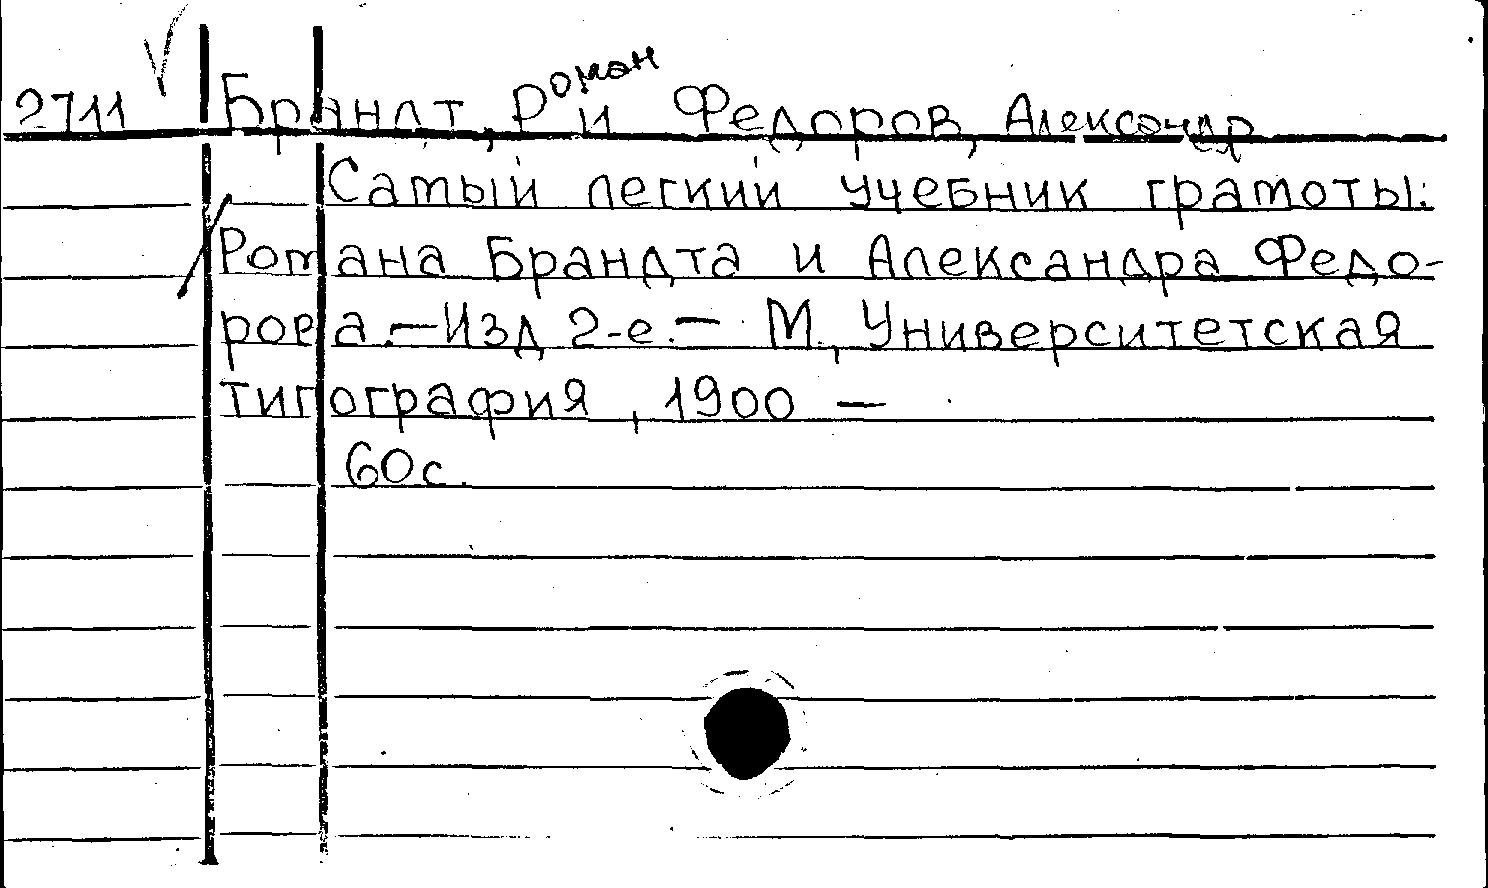 2711 Брандт, Роман и Федоров, Александр
Самый легкий учебник грамоты:
Романа Брандта и Александра Федо-
рова.—Изд 2-е.— М., Университетская
типография, 1900 —
60с.